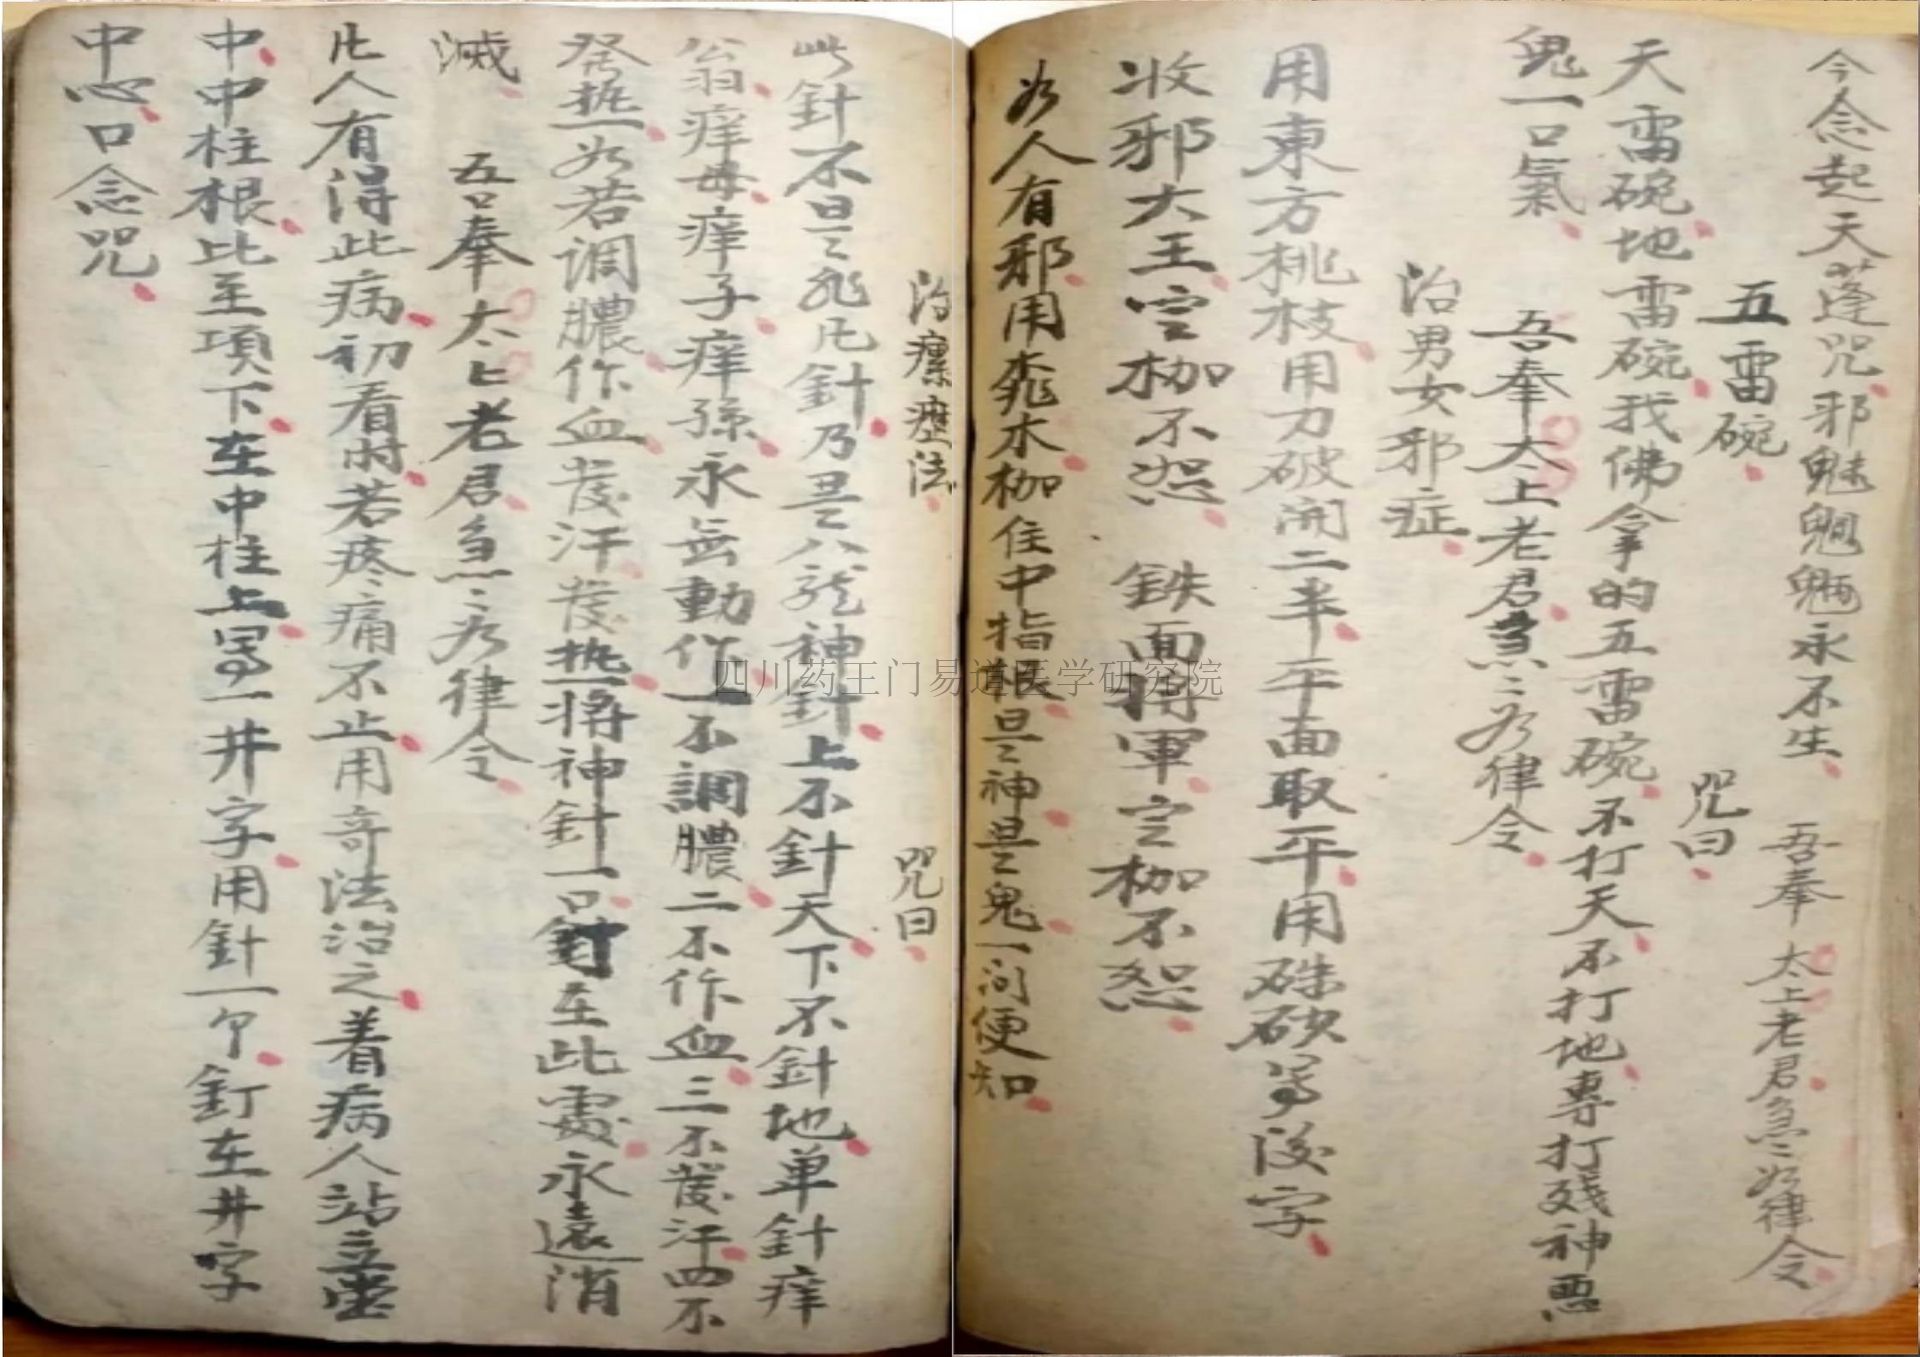 今念起天蓬咒邪魅魍魎永不生　吾奉太上老君急々如律令
五雷碗　咒曰
天雷碗地雷碗我佛拿的五雷碗不打天不打地專打殘神惡
鬼一口氣　吾奉太上老君急々如律令
治男女邪症
用東方桃枝用刀破開二半平面取平用硃砂写後字
收邪大王空枷不恕　鉄面將軍空枷不恕
如人有邪用桃木枷住中指根是神是鬼一问便知
治瘰癧法　咒曰
此針不是非凡針乃是八龍神針上不針天下不針地单針痒
翁痒母痒子痒孫永無動作一不調膿二不作血三不發汗四不
發热如若調膿作血發汗發热將神針一口釘在此處永遠消
滅　吾奉太上老君急々如律令
凡人有得此病初看时若疼痛不止用奇法治之着病人站立堂
中中柱根比至項下在中柱上写一井字用針一个釘在井字
中心口念咒
四川药王门易道医学研究院